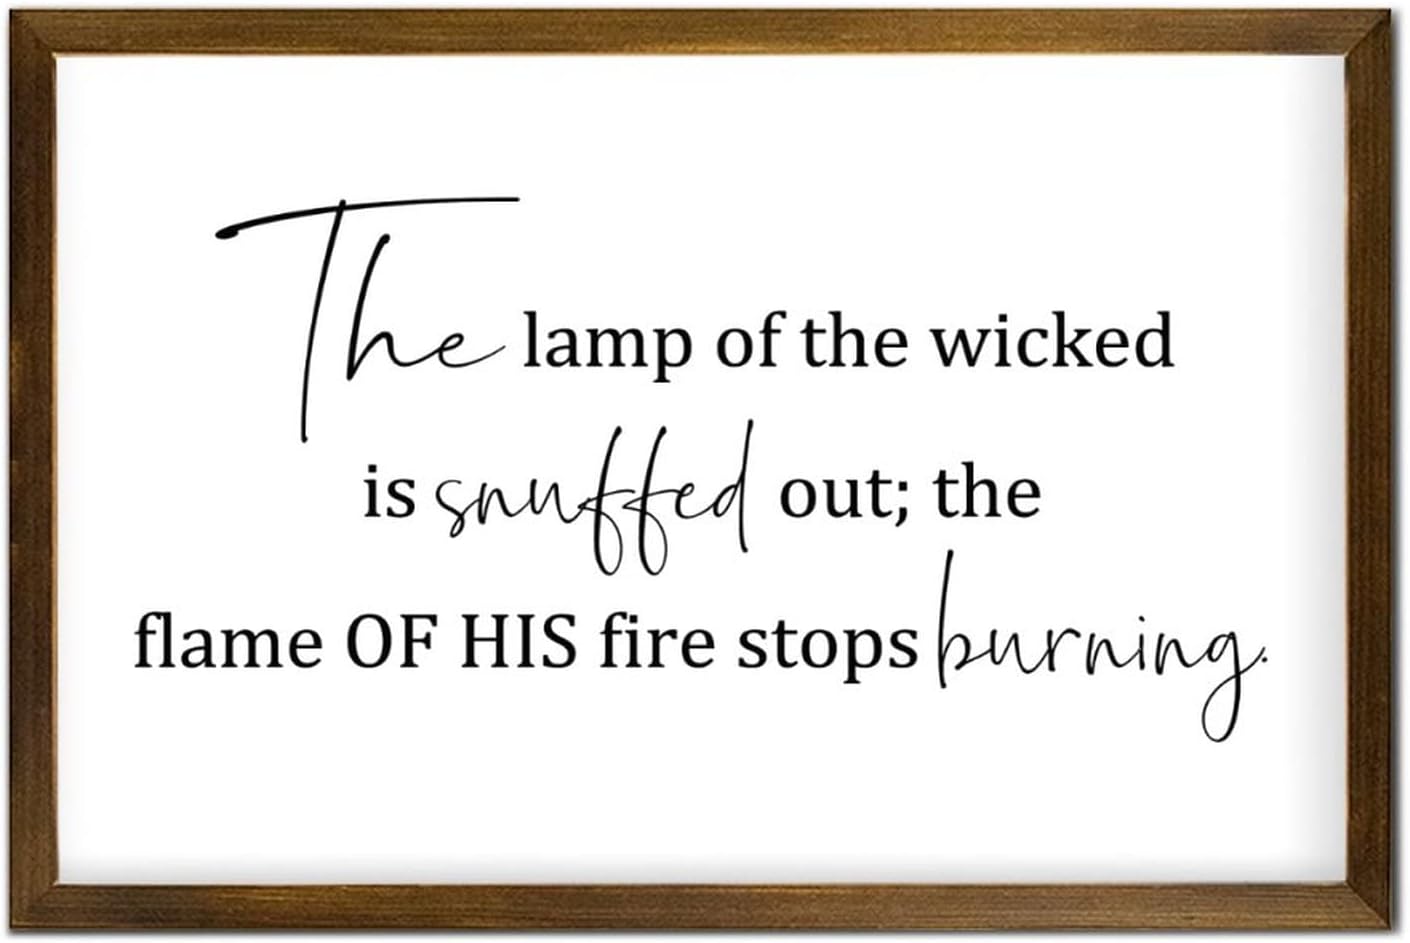 The lamp of the wicked
is snuffed out; the
flame OF HIS fire stops burning.